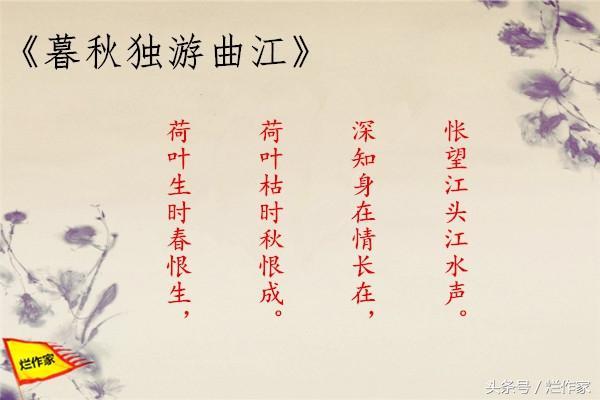 《暮秋独游曲江》
荷叶生时春恨生，
荷叶枯时秋恨成。
深知身在情长在，
怅望江头江水声。
烂作家
头条号 / 烂作家